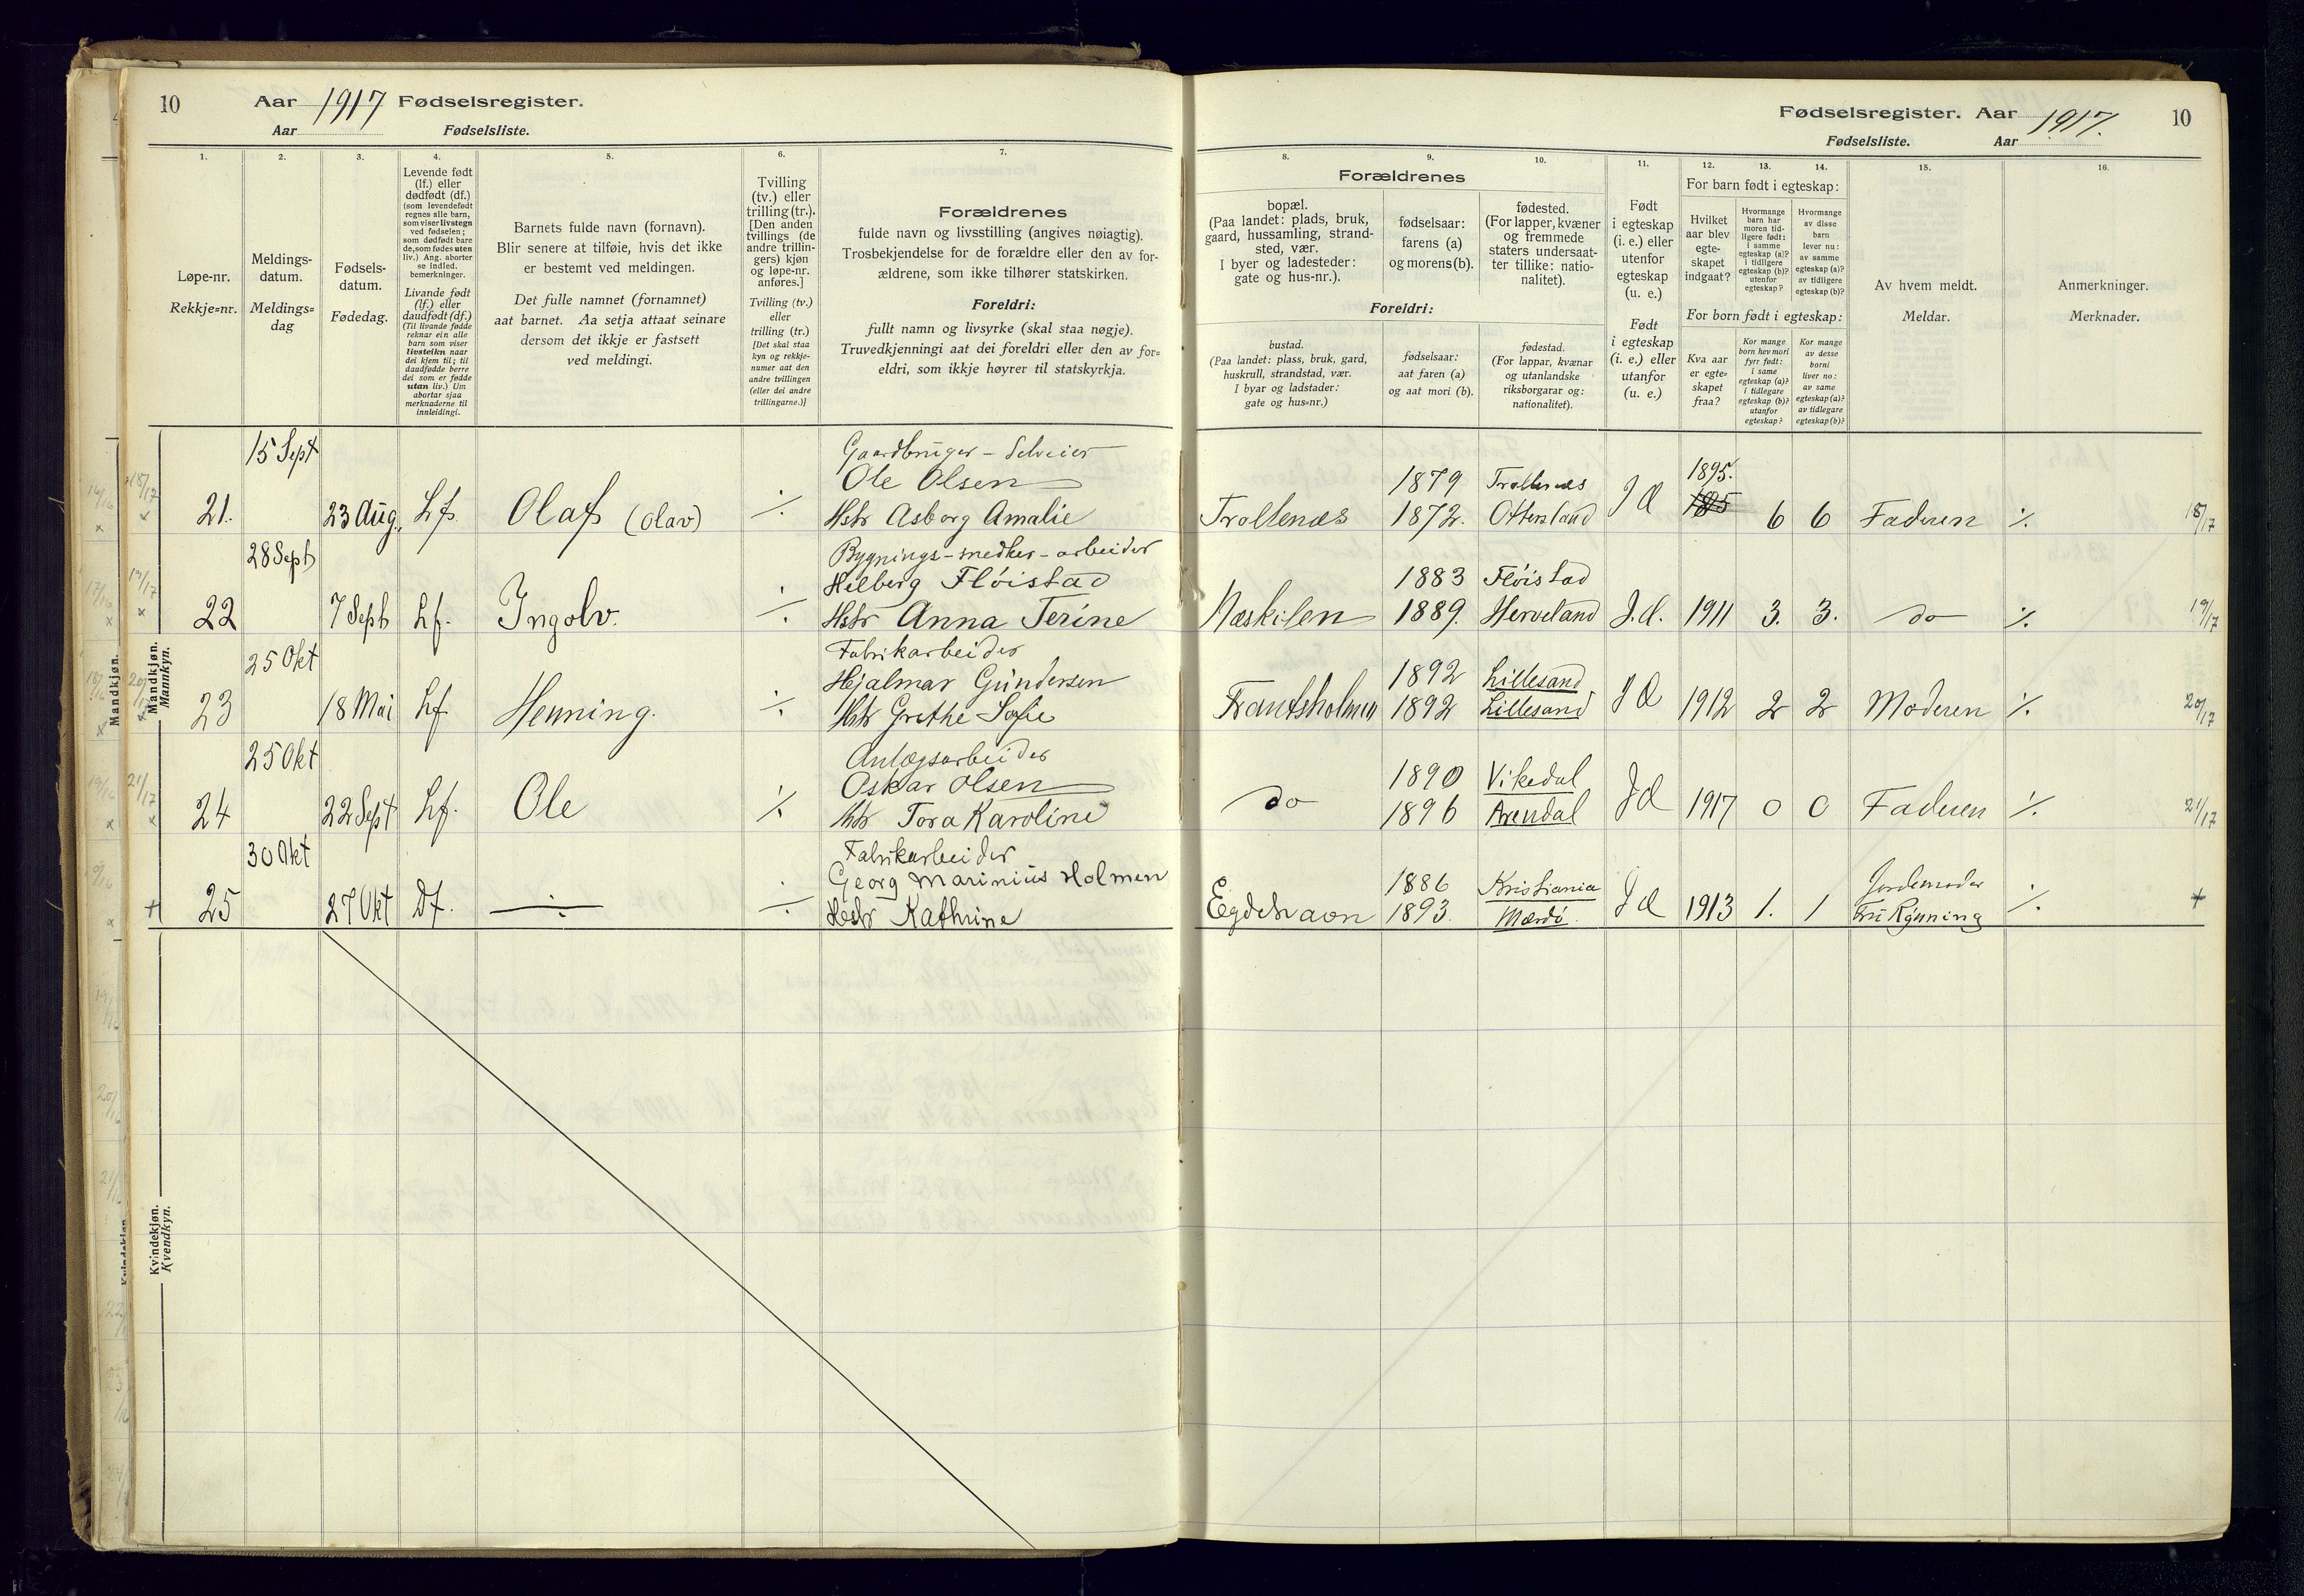 10 Aar 1917 Fødselsregister.
Aar Fødselsliste.
1.
2.
3.
4.
5.
6.
7.
Løpe-nr.
Rekkje=nr.
Meldings-
datum.
Meldings=
dag
Fødsels-
datum.
Fødedag.
Levende født
(lf.) eller
dødfødt (df.)
(som levendefødt
regnes alle barn,
som viser livstegn
ved fødselen;
som dødfødt bare
de, som fødes uten
liv.) Ang. aborter
se indled.
bemerkninger.
Livande født
(lf.) eller
daudfødt (df.)
(Til livande fødde
reknar ein alle
barn som viser
livsteikn naar
dei kjem til; til
daudfødde berre
dei som er fødde
utan liv.) Um
abortar sjaa
merknaderne til
innleidingi.
Barnets fulde navn (fornavn).
Blir senere at tilføie, hvis det ikke
er bestemt ved meldingen.
Det fulle namnet (fornamnet)
aat barnet. Aa setja attaat seinare
dersom det ikkje er fastsett
ved meldingi.
Tvilling
(tv.) eller
trilling (tr.).
[Den anden
tvillings (de
andre trillin-
gers) kjøn
og løpe-nr.
anføres.]
Tvilling (tv.)
eller
trilling (tr.)
[Det skal staa
kyn og rekkje-
numer aat den
andre tvillingen
(eller dei andre
trillingarne.)]
Forældrenes
fulde navn og livsstilling (angives nøiagtig).
Trosbekjendelse for de forældre eller den av for-
ældrene, som ikke tilhører statskirken.
Foreldri:
fullt namn og livsyrke (skal staa nøgje).
Truvedkjenningi aat dei foreldri eller den av for=
eldri, som ikkje høyrer til statskyrkja.
15 Sept
Gaardbruger - Selveier
Ole Olsen
21. 23 Aug. Lf. Olaf (Olav) ./. Hstr Asborg Amalie
28 Sept
Bygnings-snedker-arbeider
Hilberg Fløistad
22 7 Sept Lf. Ingolv. ./. Hstr Anna Terine
25 Okt
Fabrikarbeider
Hjalmar Gundersen
23 18 Mai Lf. Henning. ./. Hstr Grethe Sofie
25 Okt
Anlægsarbeider
Oskar Olsen
24 22 Sept Lf. Ole ./. Hstr Tora Karoline
30 Okt
Fabrikarbeider
Georg Marinius Holmen
+ 25 27 Okt Df. ./. Hstr Kathrine
Mandkjøn.
Mannkyn.
Kvindekjøn.
Kvendkyn.
Fødselsregister. Aar 1917. 10
Fødselsliste. Aar
8.
9.
10.
11.
12.
13.
14.
15.
16.
Forældrenes
bopæl.
(Paa landet: plads, bruk,
gaard, hussamling, strand-
sted, vær.
I byer og ladesteder:
gate og hus-nr.).
fødselsaar:
farens (a)
og morens (b).
fødested.
(For lapper, kvæner
og fremmede
staters undersaat-
ter tillike: natio-
nalitet).
Foreldri:
bustad.
(Paa landet: plass, bruk, gard,
huskrull, strandstad, vær.
I byar og ladstader:
gate og hus=nr.)
fødselsaar:
aat faren (a)
og aat mori (b).
fødestad.
(For lappar, kvænar
og utanlandske
riksborgarar og:
nationalitet).
Født
i egteskap
(i. e.) eller
utenfor
egteskap
(u. e.)
Født
i egteskap
(i. e.) eller
utanfor
(u. e.)
For barn født i egteskap:
Hvilket
aar blev
egte-
skapet
indgaat?
Hvormange
barn har
moren tid-
ligere født:
i samme
egteskap (a)?
i tidligere
egteskap (b)?
utenfor
egteskap?
Hvormange
av disse
barn
lever nu:
av samme
egteskap (a)?
av tidligere
egteskap (b)?
For born født i egteskap:
Kva aar
er egte=
skapet
fraa?
Kor mange
born hev mori
fyrr født:
i same
egteskap (a)?
i tidlegare
egteskap (b)?
utanfor
egteskap?
Kor mange
av desse
borni
liver no:
av same
egteskap (a)?
av tidlegare
egteskap (b)?
Av hvem meldt.
Meldar.
Anmerkninger.
Merknader.
1879 Trollenæs 1895.
Trollenæs 1872. Ottersland I E 6 6 Faderen ./. 18/17
1883 Fløistad
Næskilen 1889. Herveland I.E. 1911 3. 3. do ./. 19/17
1892 Lillesand
Frantsholmen 1892 Lillesand I E 1912 2 2 Moderen ./. 20/17
1890 Vikedal
do 1896 Arendal I E 1917 0 0 Faderen ./. 21/17
1886 Kristiania Jordemoder
Egdehavn 1893. Mærdø. I E 1913 1. 1 Fru Rønning ./. +